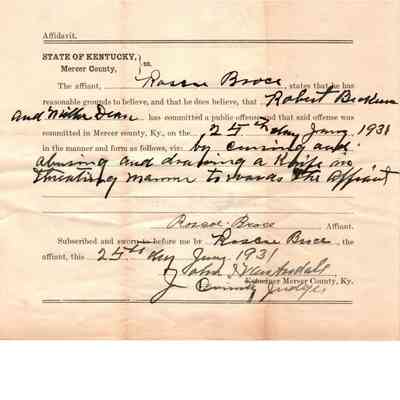 Affidavit.
STATE OF KENTUCKY,
Mercer County, } ss.
The affiant, Roscoe Broce, states that he has
reasonable grounds to believe, and that he does believe, that Robert
and Dean has committed a public offense and that said offense was
committed in Mercer county, Ky., on the 25th day Jany. 1931
in the manner and form as follows, viz: by cursing and
abusing and drawing a Knife in
manner towards the affiant
Roscoe Broce Affiant.
Subscribed and sworn to before me by Roscoe Broce, the
affiant, this 25th day Jany 1931
John
Examiner Mercer County, Ky.
County Judge